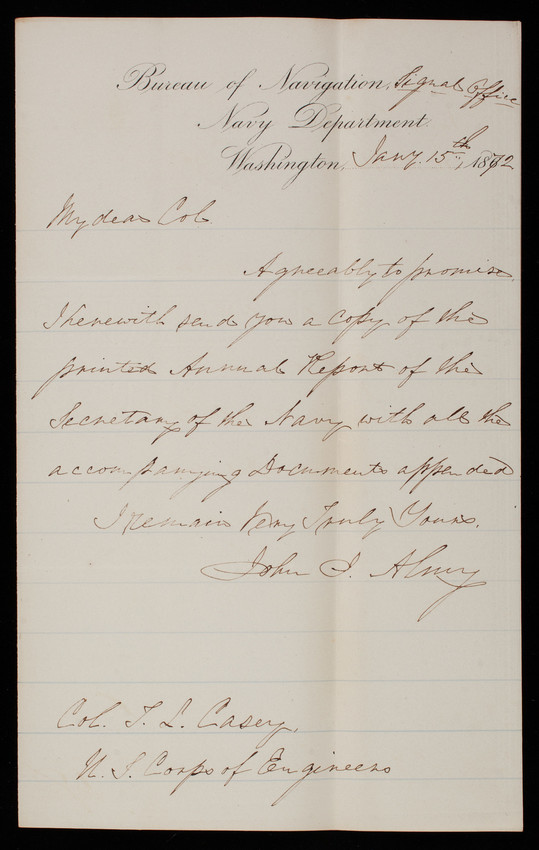 Bureau of Navigation, Signal Office
Navy Department.
Washington, Jany. 15th, 1872
My dear Col.
Agreeably to promise.
I herewith send you a copy of the
printed Annual Report of the
Secretary of the Navy with all the
accompanying Documents appended
I remain Very Truly Yours,
John J. Almy
Col. T. L. Casey,
U. S. Corps of Engineers